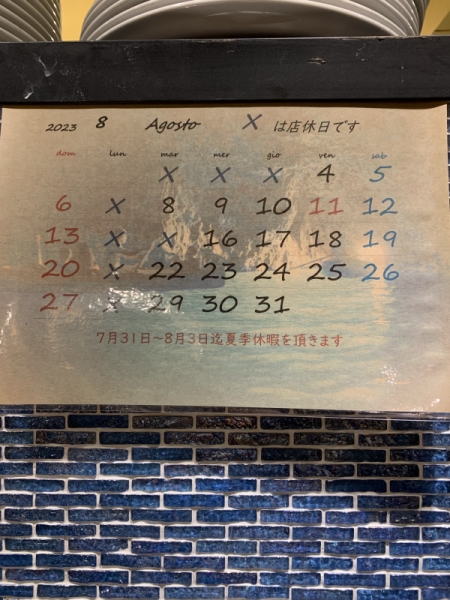 2023 8 Agosto X は店休日です
dom lun mar mer gio ven sab
X X X 4 5
6 X 8 9 10 11 12
13 X X 16 17 18 19
20 X 22 23 24 25 26
27 X 29 30 31
7月31日〜8月3日迄夏季休暇を頂きます